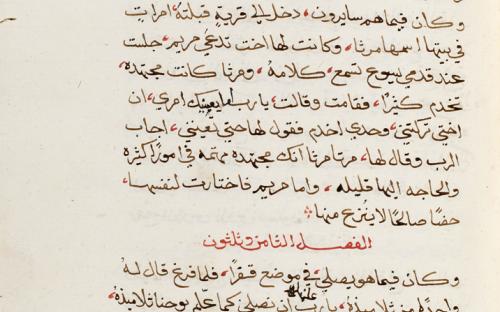 وكان فيما هم سايرون، دخل الي قرية قبلته امراة
في بيتها اسمها مرثا، وكانت لها اخت تدعي مريم، جلست
عند قدمي يسوع تسمع، كلامه، ومرثا كانت مجتهده،
تخدم كثيرًا، فقامت وقالت، يارب اما يعنيك امري، ان
اختي تركتني، وحدي اخدم فقول لها حتي تعينني، اجاب
الرب وقال لها، مرثا مرثا انك مجتهده مهتمه في امورًا كثيرة
والحاجه اليها قليله، واما مريم فاختارت لنفسها،
حظًا صالحًا لا ينزع منها
الفصل الثامن وثلثون
وكان فيما هو يصلي، في موضع قفرًا، فلما فرغ قال له
واحدًا من تلاميذه، يارب علمنا ان نصلي كما علم يوحنا تلاميذه،